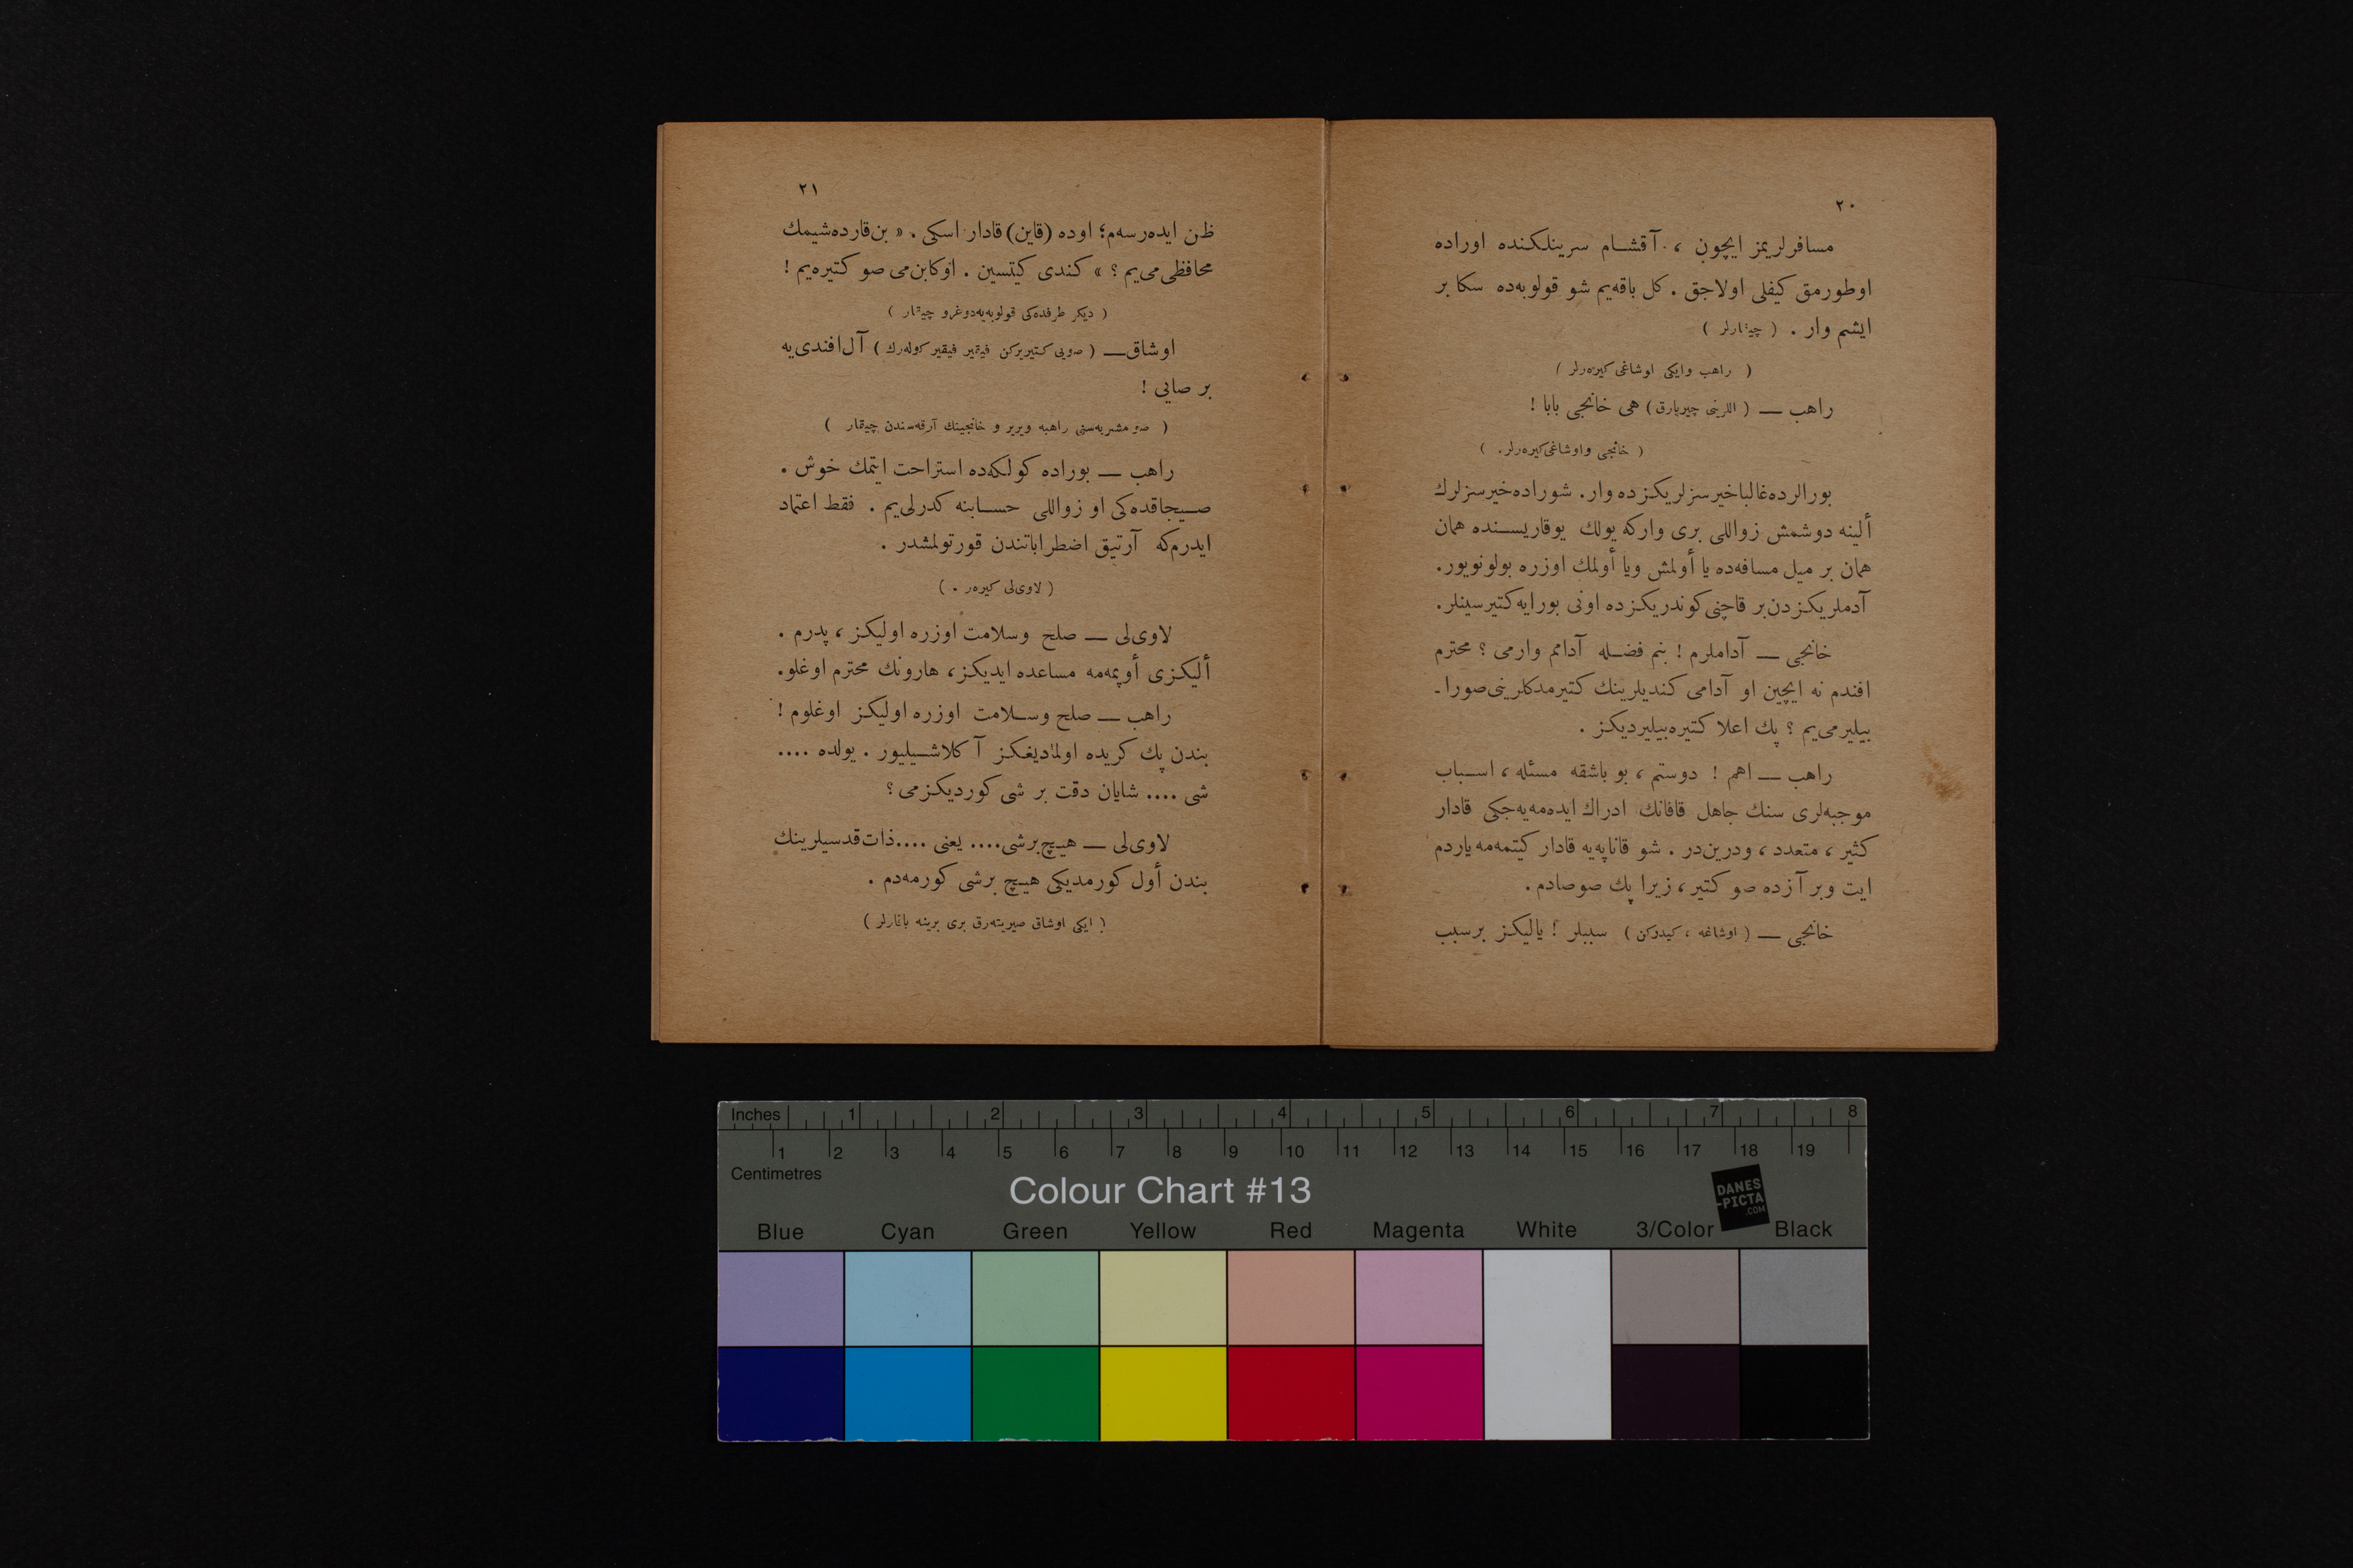 ٢٠
مسافرلريمز ايچون ، آقشام سرينلكنده اوراده
اوطورمق كيفلى اولاجق . كل باقه‌يم شو قولوبه‌ده سكا بر
ايشم وار . ( چيقارلر )
( راهب وايكى اوشاغى كيره‌رلر )
راهب — ( اللرينى چيرپارق ) هى خانجى بابا !
( خانجى واوشاغى كيره‌رلر. )
بورالرده غالبا خيرسزلريكزده وار. شوراده خيرسزلرك
ألينه دوشمش زواللى برى واركه يولك يوقاريسنده همان
همان بر ميل مسافه‌ده يا أولمش ويا أولمك اوزره بولونويور.
آدملريكزدن بر قاچنى كوندريكزده اونى بورايه كتيرسينلر.
خانجى — آداملرم ! بنم فضله آدامم وارمى ؟ محترم
افندم نه ايچين او آدامى كنديلرينك كتيرمدكلرينى صورا ـ
بيليرمى‌يم ؟ پك اعلا كتيره‌بيليرديكز .
راهب — اهم ! دوستم ، بو باشقه مسئله ، اسباب
موجبه‌لرى سنك جاهل قافانك ادراك ايده‌مه‌يه‌جكى قادار
كثير ، متعدد ، ودرين‌در . شو قاناپه‌يه قادار كيتمه‌مه ياردم
ايت وبر آزده صو كتير ، زيرا پك صوصادم .
خانجى — ( اوشاغه ، كيدركن ) سببلر ! يالكيز برسبب
٢١
ظن ايده‌رسه‌م؛ اوده (قاين) قادار اسكى . « بن قارده‌شيمك
محافظى مى‌يم ؟ » كندى كيتسين . اوكابن‌مى صو كتيره‌يم !
( ديكر طرفده‌كى قولوبه‌يه‌دوغرو چيقار )
اوشاق — ( صويى كتيريركن فيقير فيقير كوله‌رك ) آل افندى‌يه
بر صايى !
( صو مشربه‌سنى راهبه ويرير و خانجينك آرقه‌سندن چيقار )
راهب — بوراده كولكه‌ده استراحت ايتمك خوش .
صيجاقده‌كى او زواللى حسابنه كدرلى‌يم . فقط اعتماد
ايدرم‌كه آرتيق اضطراباتندن قورتولمشدر .
( لاوى‌لى كيره‌ر . )
لاوى‌لى — صلح وسلامت اوزره اوليكز ، پدرم .
أليكزى أوپمه‌مه مساعده ايديكز ، هارونك محترم اوغلو.
راهب — صلح وسلامت اوزره اوليكز اوغلوم !
بندن پك كريده اولماديغكز آكلاشيليور . يولده ....
شى .... شايان دقت بر شى كورديكزمى ؟
لاوى‌لى — هيچ برشى .... يعنى .... ذات قدسيلرينك
بندن أول كورمديكى هيچ برشى كورمه‌دم .
( ايكى اوشاق صيريته‌رق برى برينه باقارلر )
Inches 1 2 3 4 5 6 7 8
1 2 3 4 5 6 7 8 9 10 11 12 13 14 15 16 17 18 19
Centimetres
Colour Chart #13
DANES
-PICTA
.COM
Blue Cyan Green Yellow Red Magenta White 3/Color Black